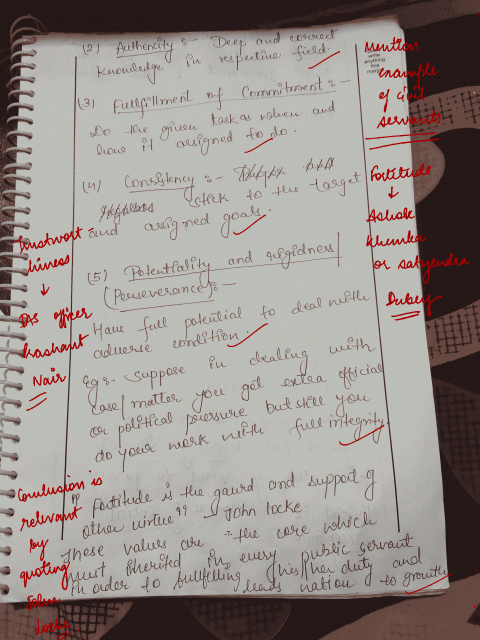 (2) Authencity :- Deep and correct
knowledge in respective field.
(3) Fullfillment of Commitment :-
Do the given task as when and
how it assigned to do.
(4) Consistency :-
stick to the target
and assigned goals.
(5) Potentiality and rigidness
(Perseverance) :-
Have full potential to deal with
adverse condition.
Eg :- suppose in dealing with
case/matter you get extra official
or political pressure but still you
do your work with full integrity.
"Fortitude is the gaurd and support of
other virtue" - John locke
These values are the core which
must inherited in every public servant
in order to fullfilling his/her duty and
leads nation to growth
Mention
example
of civil
servants
Fortitude
↓
Ashok
Khemka
or satyendra
Dubey
trustwort-
hiness
↓
IAS officer
Prashant
Nair
Conclusion is
relevant
by
quoting
John
Locke